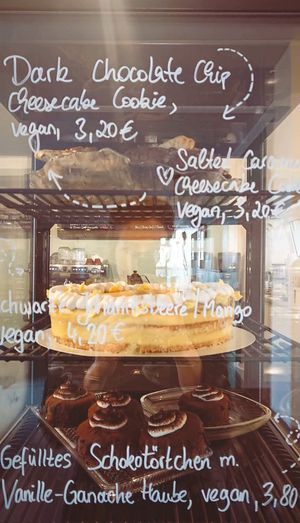 Dark Chocolate Chip
Cheesecake Cookie,
vegan, 3,20€
Salted Caramel
Cheesecake Cookie
vegan, 3,20€
chwarze Johannisbeere / Mango
vegan, 4,20€
Gefülltes Schokotörtchen m.
Vanille-Ganache Haube, vegan, 3,80